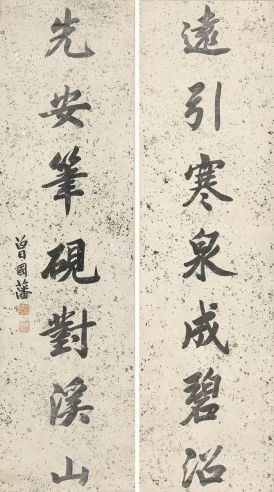 遠引寒泉成碧沼
先安筆硯對溪山
曾國藩